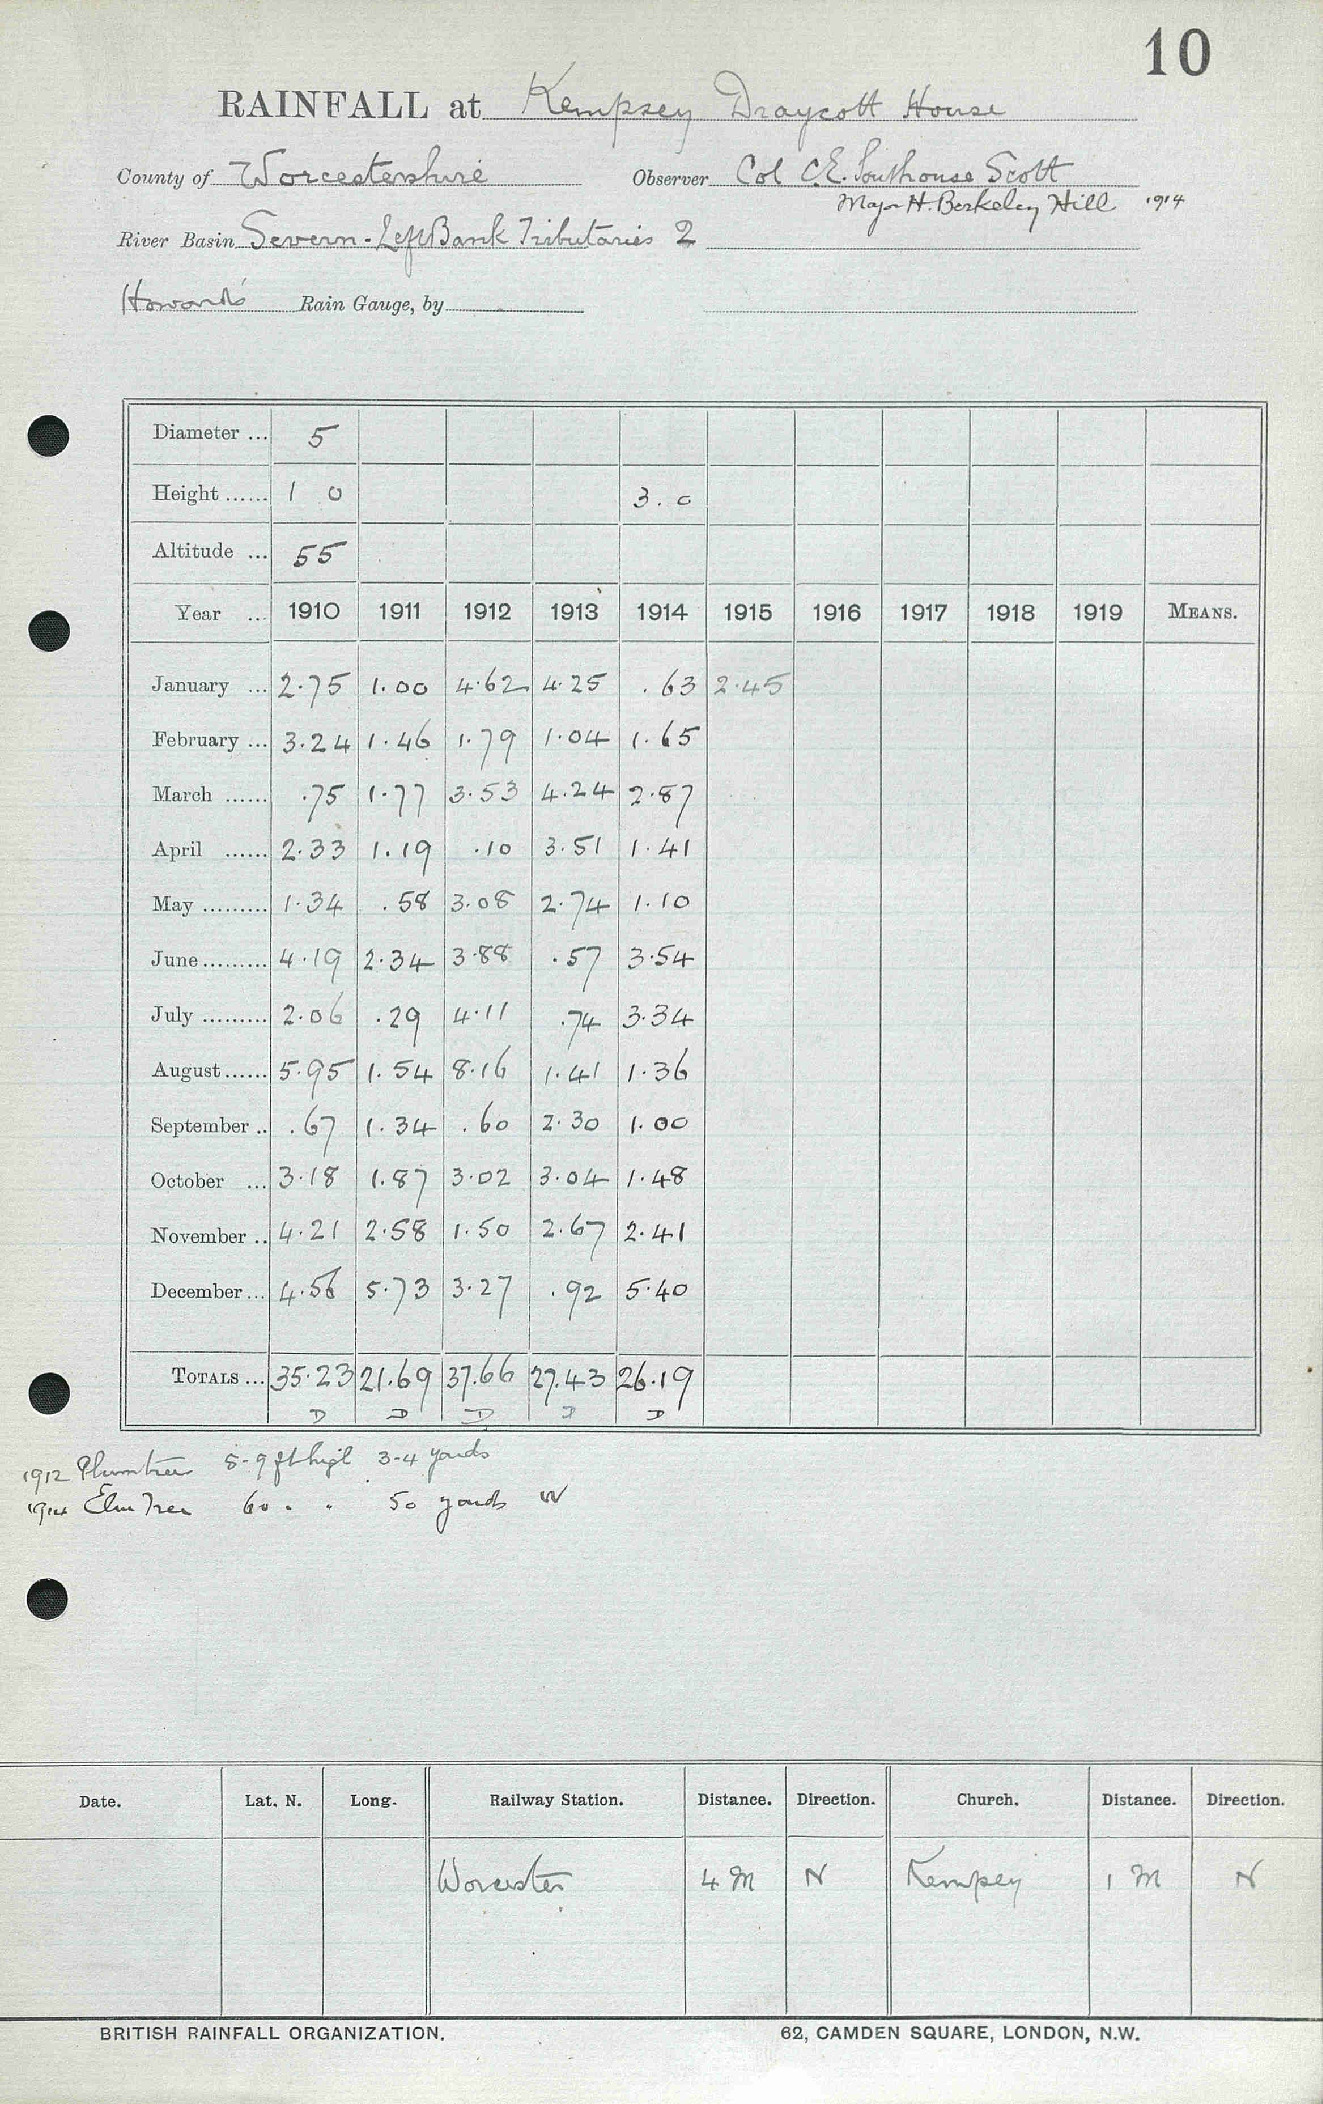 10
RAINFALL at Kempsey Draycott House
County of Worcestershire Observer Col C.E. Southouse Scott
Major H. Berkeley Hill 1914
River Basin Severn - Left Bank Tributaries 2
Howard's Rain Gauge, by
Diameter ... 5
Height ...... 1 0 3.0
Altitude ... 55
Year ... 1910 1911 1912 1913 1914 1915 1916 1917 1918 1919 MEANS.
January ... 2.75 1.00 4.62 4.25 .63 2.45
February ... 3.24 1.46 1.79 1.04 1.65
March ...... .75 1.77 3.53 4.24 2.87
April ...... 2.33 1.19 .10 3.51 1.41
May ......... 1.34 .58 3.08 2.74 1.10
June ......... 4.19 2.34 3.88 .57 3.54
July ......... 2.06 .29 4.11 .74 3.34
August ...... 5.95 1.54 8.16 1.41 1.36
September .. .67 1.34 .60 2.30 1.00
October ... 3.18 1.87 3.02 3.04 1.48
November .. 4.21 2.58 1.50 2.67 2.41
December ... 4.56 5.73 3.27 .92 5.40
TOTALS ... 35.23 21.69 37.66 27.43 26.19
D D D D D
1912 Plumtree 8-9 ft high 3-4 yards
1914 Elm Tree 60 " " 50 yards W
Date. Lat. N. Long. Railway Station. Distance. Direction. Church. Distance. Direction.
Worcester 4 M N Kempsey 1 M N
BRITISH RAINFALL ORGANIZATION. 62, CAMDEN SQUARE, LONDON, N.W.